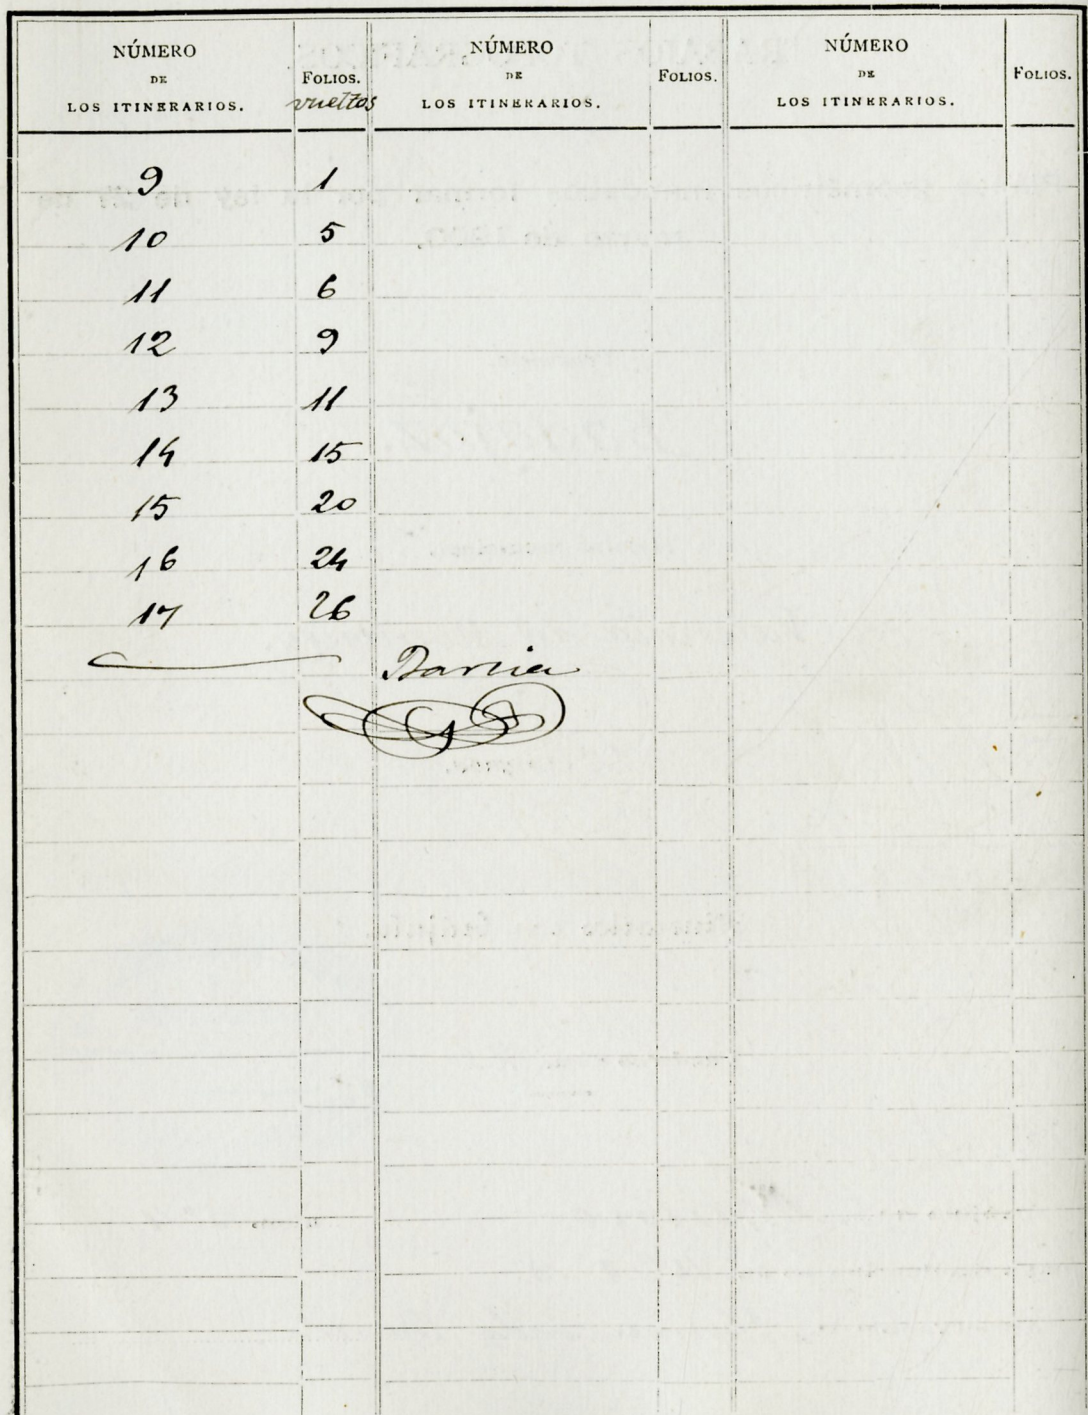 NÚMERO DE LOS ITINERARIOS. FOLIOS. vueltos NÚMERO DE LOS ITINERARIOS. FOLIOS. NÚMERO DE LOS ITINERARIOS. FOLIOS.
9 1
10 5
11 6
12 9
13 11
14 15
15 20
16 24
17 26